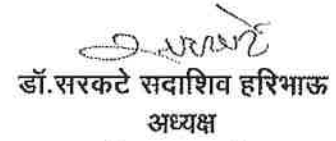 डॉ.सरकटे सदाशिव हरिभाऊ
अध्यक्ष